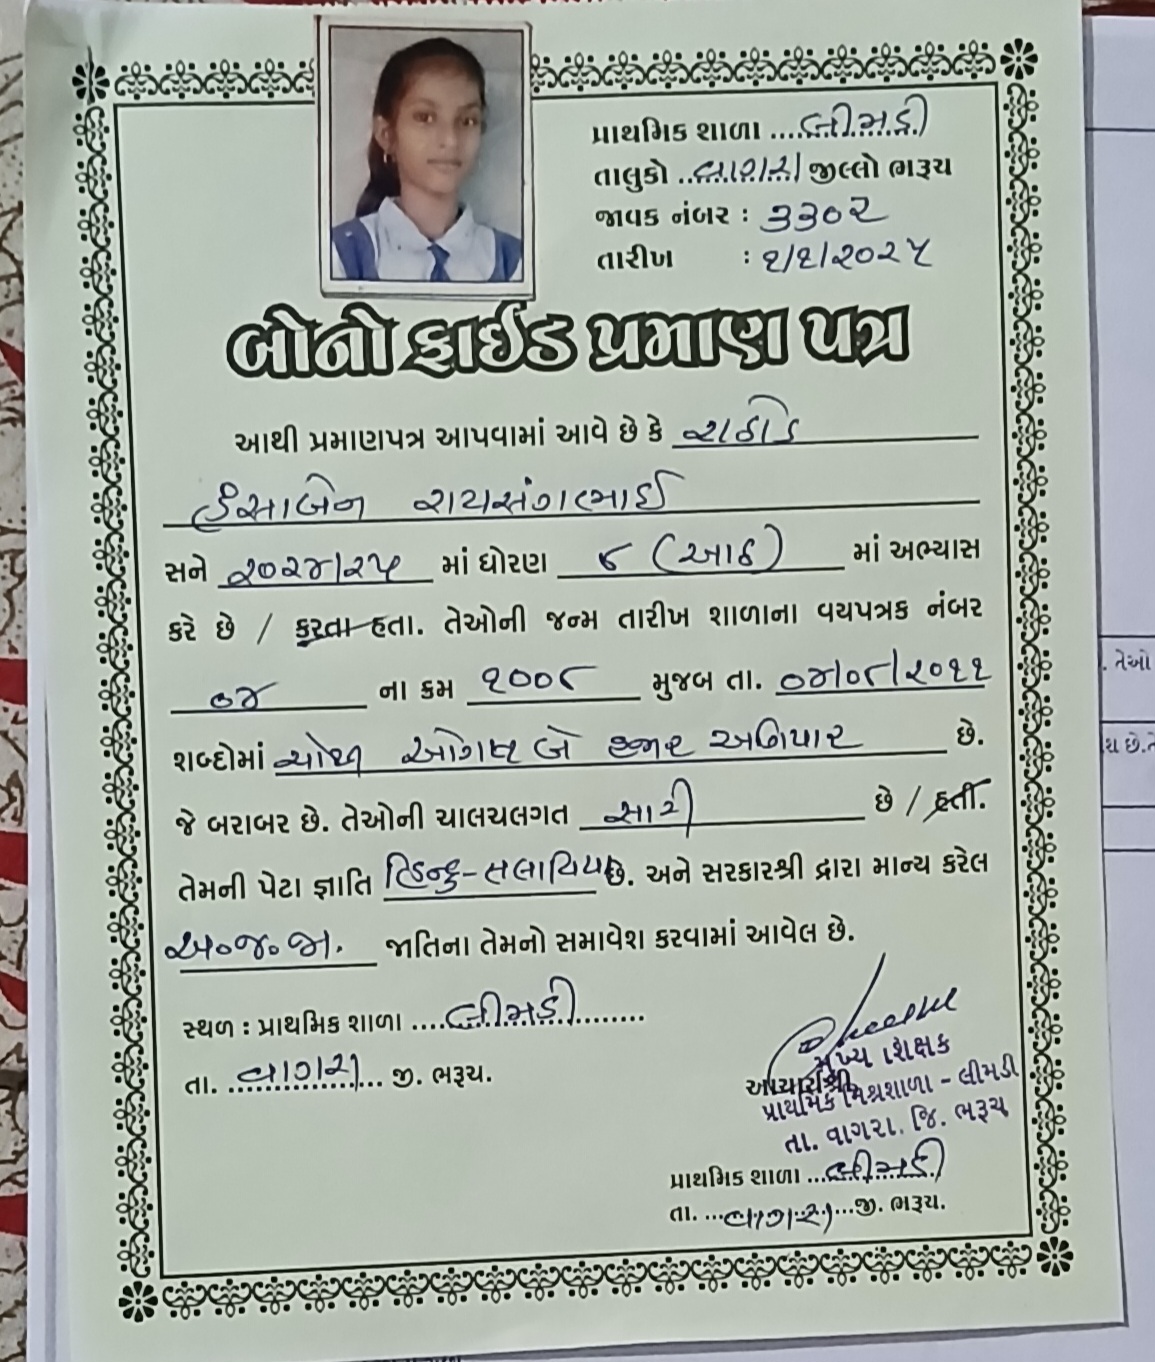 પ્રાથમિક શાળા ....લીમડી
તાલુકો ..વાગરા જીલ્લો ભરૂચ
જાવક નંબર : ૩૩૦૨
તારીખ : ૧/૧/૨૦૨૫
બોનો ફાઈડ પ્રમાણ પત્ર
આથી પ્રમાણપત્ર આપવામાં આવે છે કે રાઠોડ
હંસાબેન રાયસંગભાઈ
સને ૨૦૨૪/૨૫ માં ધોરણ ૮ (આઠ) માં અભ્યાસ
કરે છે / કરતા હતા. તેઓની જન્મ તારીખ શાળાના વયપત્રક નંબર
૦૪ ના ક્રમ ૧૦૦૮ મુજબ તા. ૦૪/૦૮/૨૦૧૧
શબ્દોમાં ચોથી ઓગષ્ટ બે હજાર અગિયાર છે.
જે બરાબર છે. તેઓની ચાલચલગત સારી છે / હતી.
તેમની પેટા જ્ઞાતિ હિન્દુ- છે. અને સરકારશ્રી દ્વારા માન્ય કરેલ
અ.જ.જા. જાતિના તેમનો સમાવેશ કરવામાં આવેલ છે.
સ્થળ : પ્રાથમિક શાળા ....લીમડી........
તા. ..વાગરા... જી. ભરૂચ.
મુખ્ય શિક્ષક
આચાર્યશ્રી
પ્રાથમિક મિશ્રશાળા - લીમડી
તા. વાગરા. જિ. ભરૂચ
પ્રાથમિક શાળા ...લીમડી
તા. ...વાગરા...જી. ભરૂચ.
. તેઓ
છે.તે